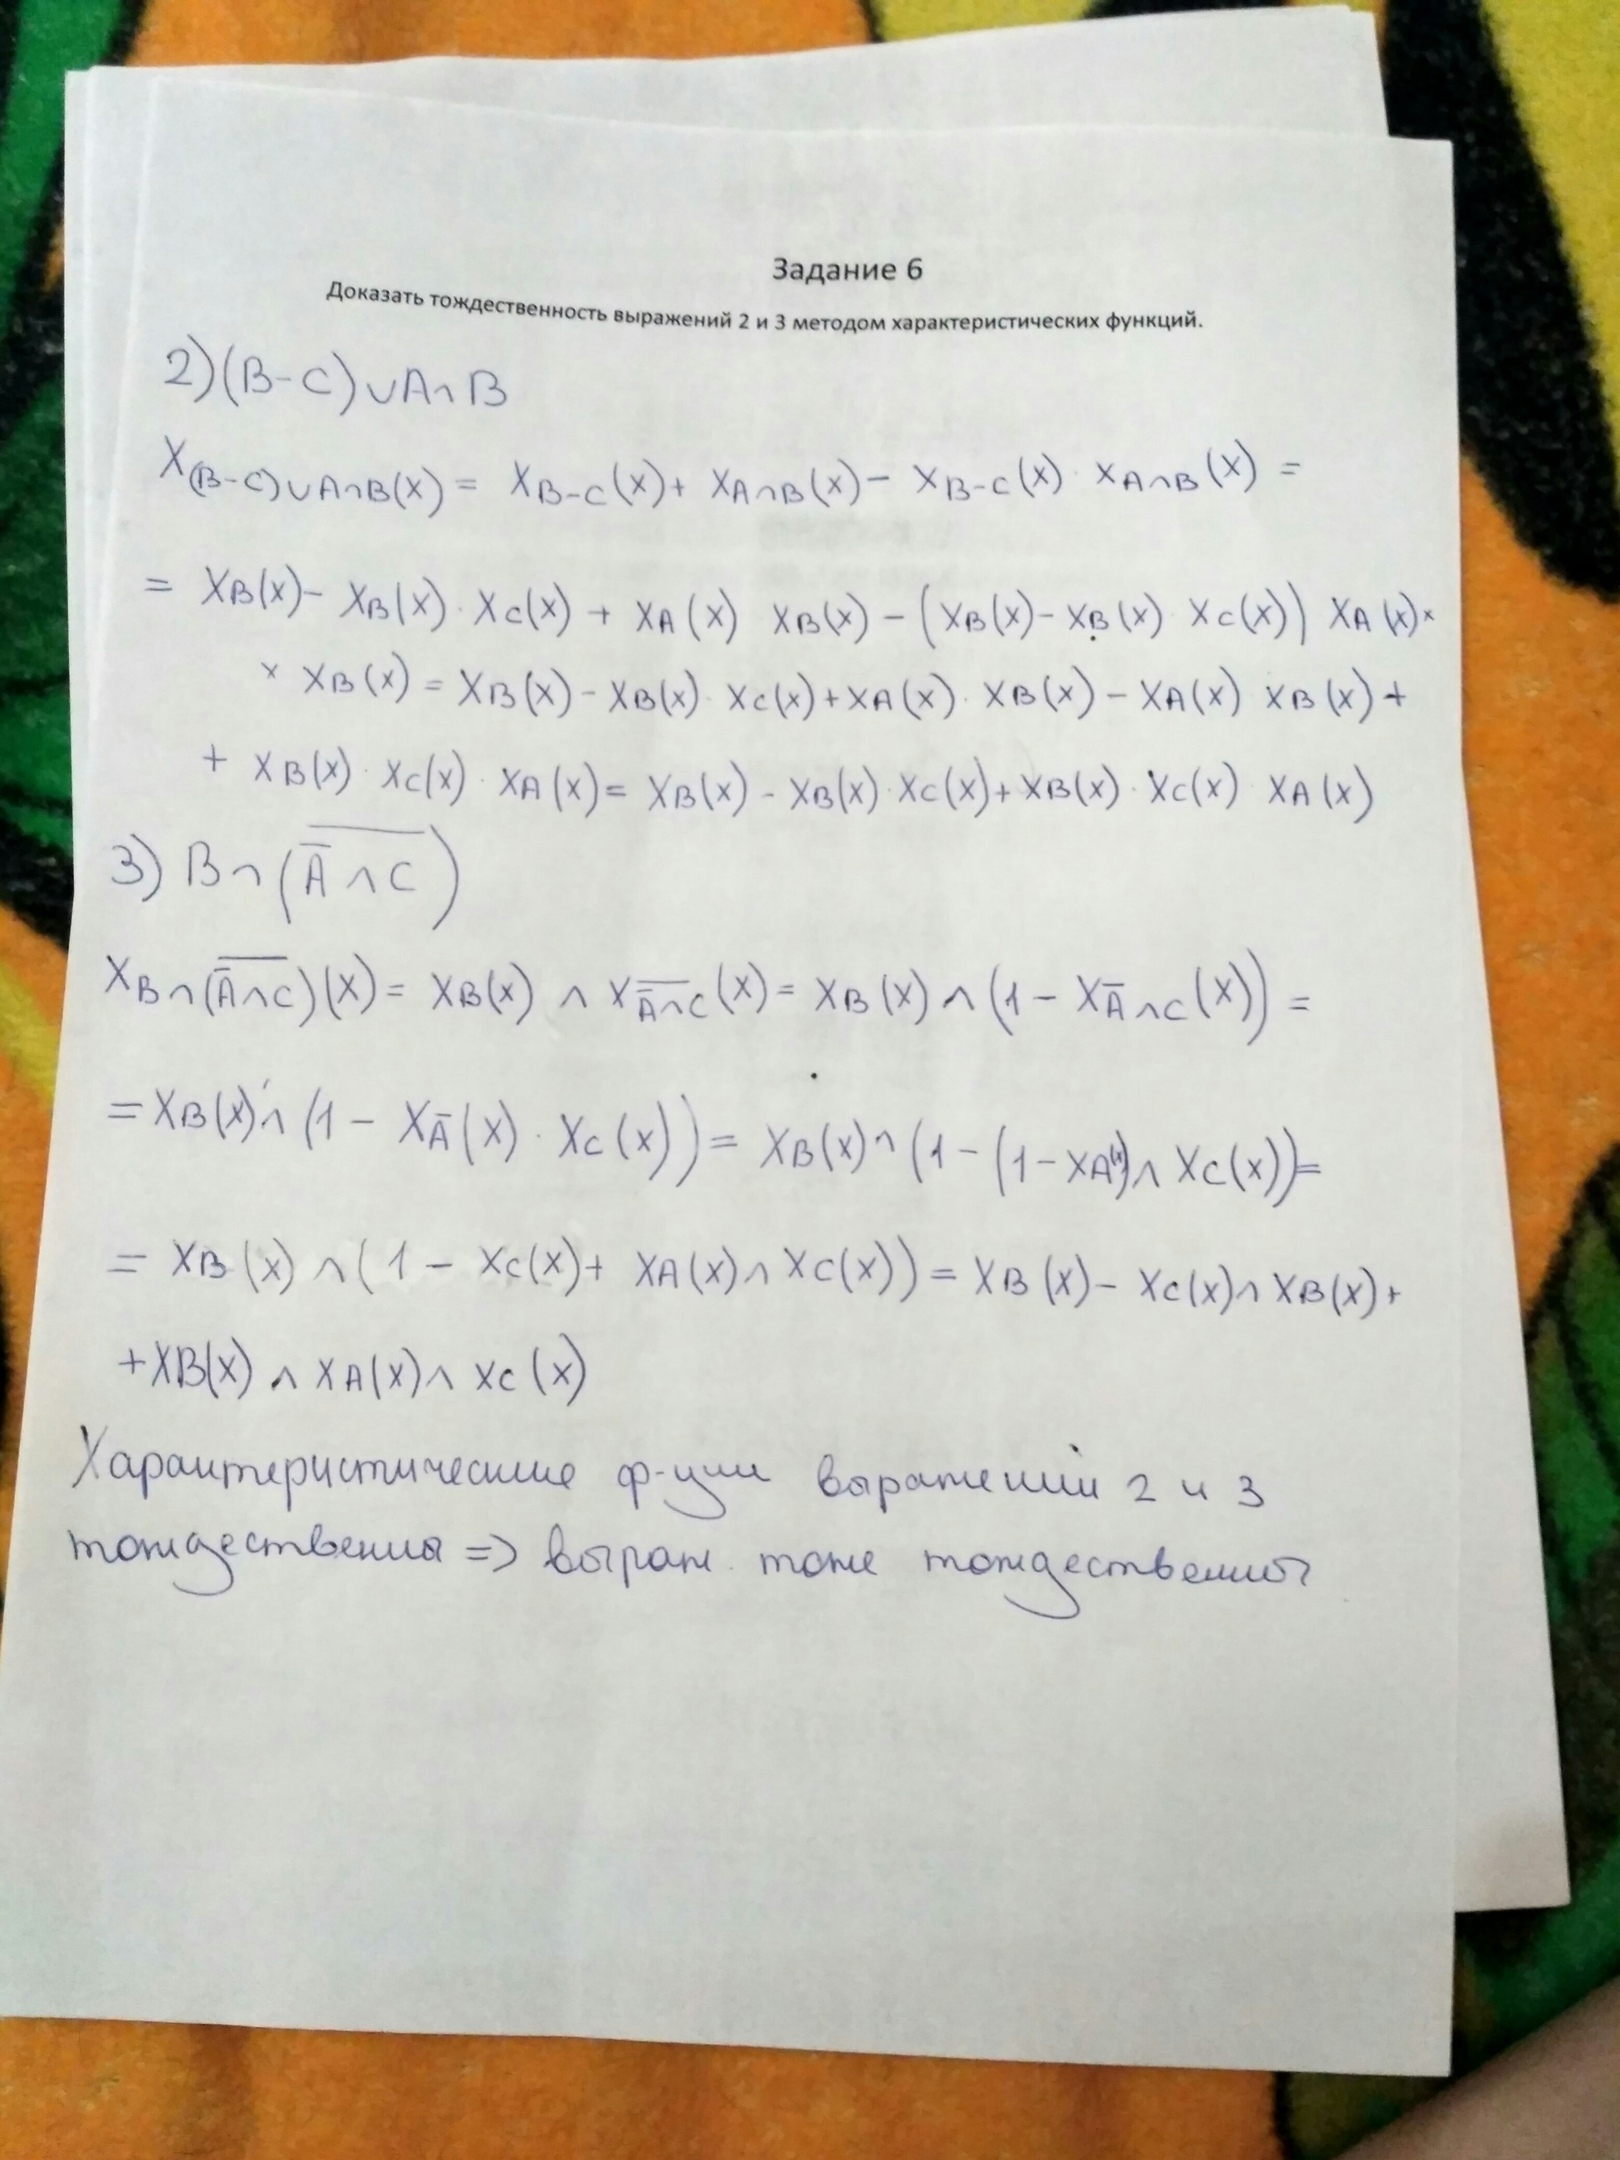 Задание 6
Доказать тождественность выражений 2 и 3 методом характеристических функций.
2)(B-C)∪A∩B
X(B-C)∪A∩B(x) = XB-C(x)+ XA∩B(x)- XB-C(x)·XA∩B(x) =
= XB(x)- XB(x)·XC(x) + XA(x) XB(x) - (XB(x)- XB(x)·XC(x)) XA(x)×
× XB(x) = XB(x)- XB(x)·XC(x)+XA(x)·XB(x)- XA(x) XB(x)+
+ XB(x)·XC(x)·XA(x)= XB(x)- XB(x)·XC(x)+XB(x)·XC(x) XA(x)
3) B∩(\overline{\overline{A}∩C})
XB∩(\overline{\overline{A}∩C})(x)= XB(x) ∧ X\overline{\overline{A}∩C}(x)= XB(x)∧(1- X\overline{A}∩C(x)) =
=XB(x)∧(1- X\overline{A}(x)·XC(x))= XB(x)∧(1-(1-XA(x))∧ XC(x))=
= XB(x)∧(1- XC(x)+ XA(x)∧XC(x))= XB(x)- XC(x)∧XB(x)+
+XB(x)∧XA(x)∧XC(x)
Характеристические ф-ции выражений 2 и 3
тождественны => выраж. тоже тождественны